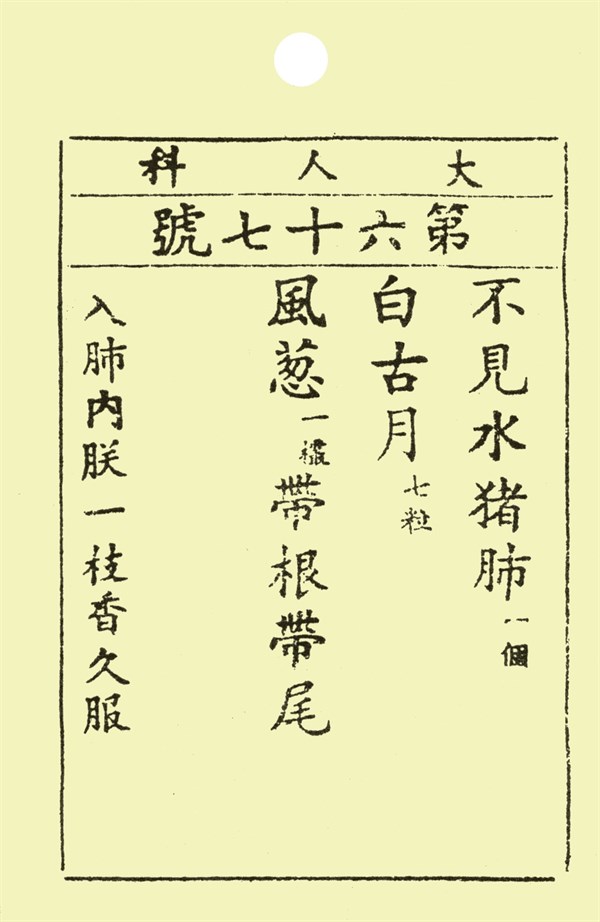 大人科
第六十七號
不見水猪肺一個
白古月七粒
風葱一帶根帶尾
入肺内朕一枝香久服